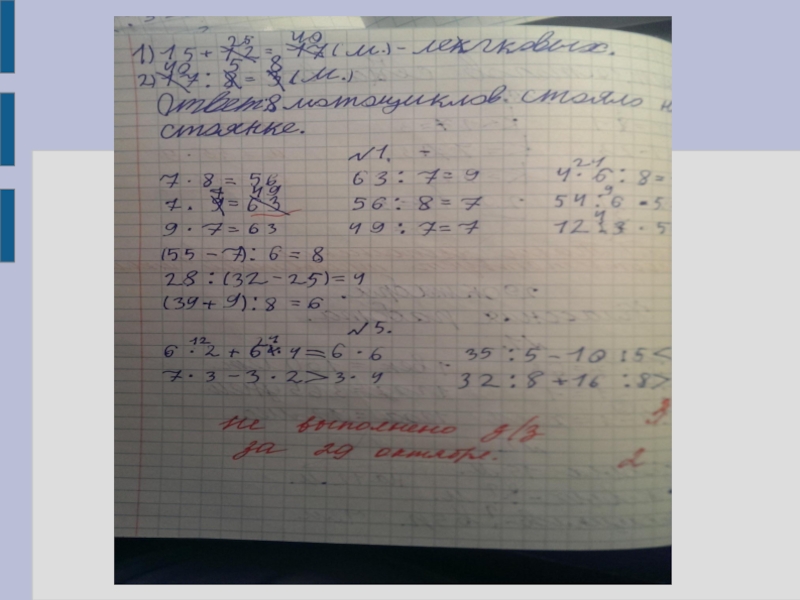 1) 15 + 25 = 40 (м.) - легковых.
2) 40 : 5 = 8 (м.)
Ответ: 8 мотоциклов стояло н
стоянке.
№1.
7 · 8 = 56 63 : 7 = 9 4 · 6 : 8 =
7 · 7 = 49 56 : 8 = 7 54 : 6 · 5
9 · 7 = 63 49 : 7 = 7 12 : 3 · 5
(55 - 7) : 6 = 8
28 : (32 - 25) = 4
(39 + 9) : 8 = 6
№5.
6 · 2 + 6 · 4 = 6 · 6 35 : 5 - 10 : 5 <
7 · 3 - 3 · 2 > 3 · 4 32 : 8 + 16 : 8 >
не выполнено д/з 3
за 29 октября. 2